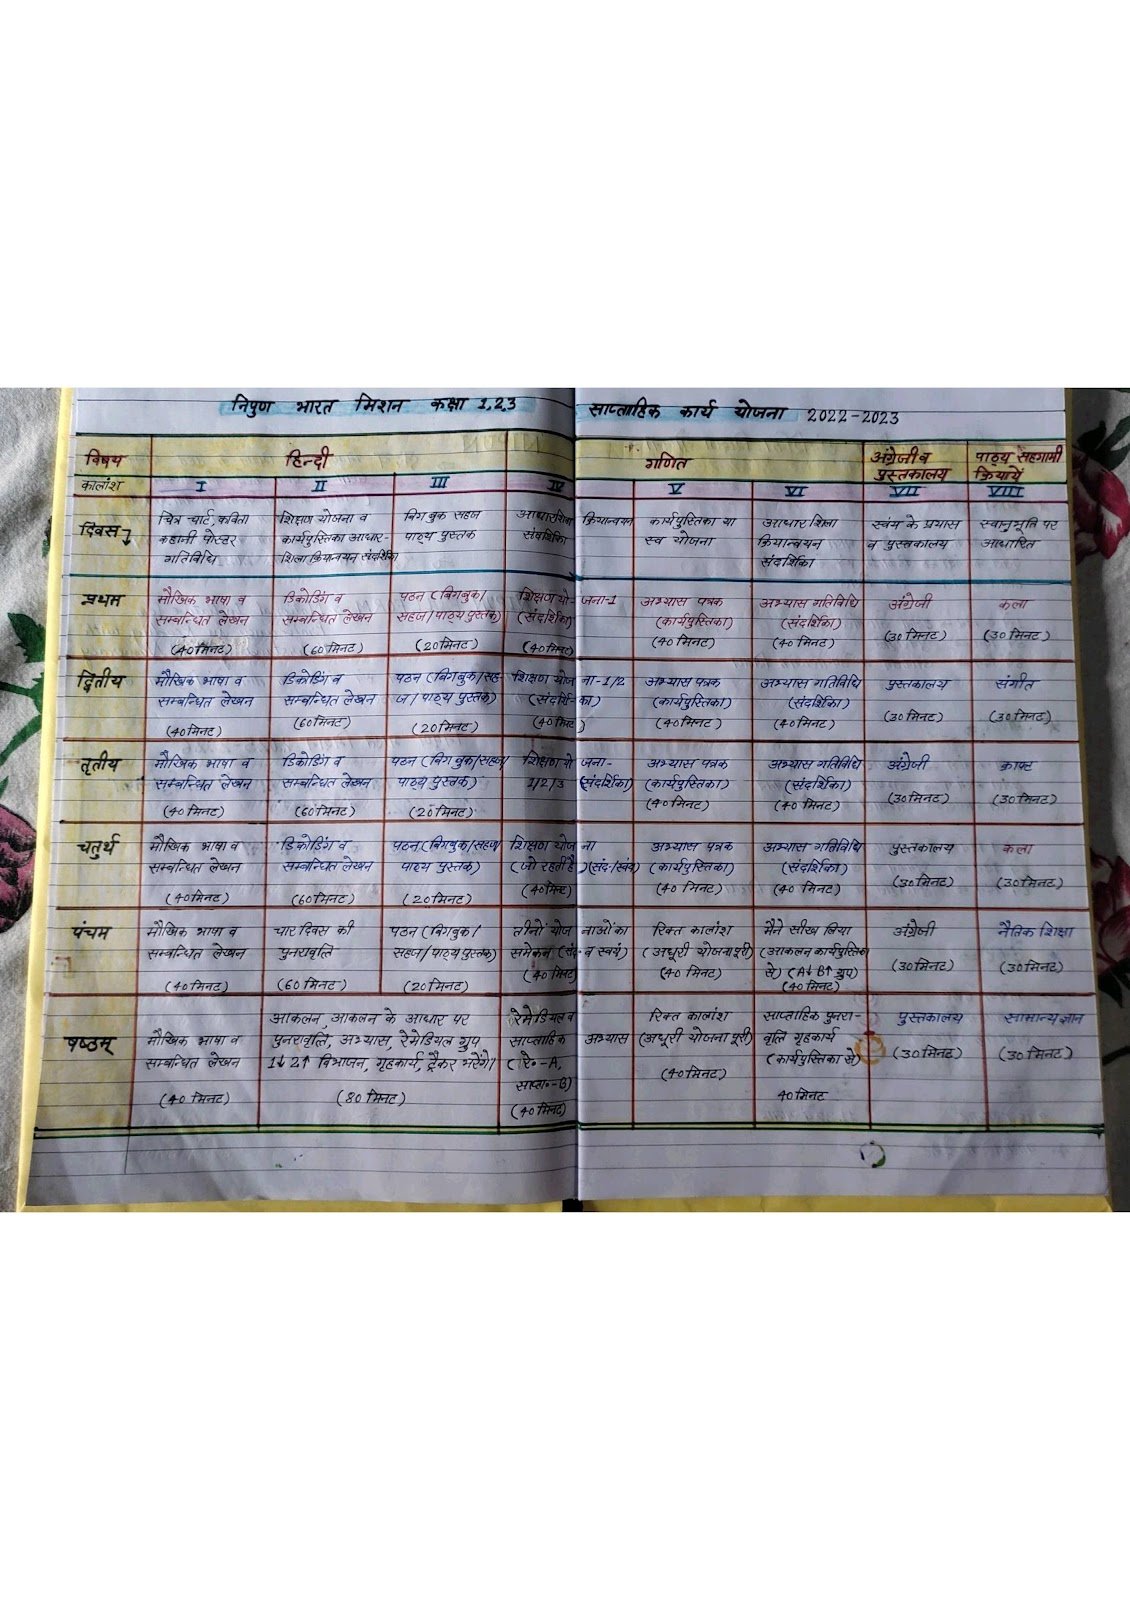 निपुण भारत मिशन कक्षा 1,2,3 साप्ताहिक कार्य योजना 2022-2023
विषय हिन्दी गणित अंग्रेजी व पाठ्य सहगामी
पुस्तकालय क्रियायें
कालांश I II III IV V VI VII VIII
दिवस
चित्र चार्ट, कविता
कहानी पोस्टर
गतिविधि
शिक्षण योजना व
कार्यपुस्तिका आधार-
शिला क्रियान्वयन संदर्शिका
बिग बुक सहज
पाठ्य पुस्तक
आधारशिला क्रियान्वयन
संदर्शिका
कार्यपुस्तिका या
स्व योजना
आधार शिला
क्रियान्वयन
संदर्शिका
स्वंय के प्रयास
व पुस्तकालय
स्वानुभूति पर
आधारित
प्रथम
मौखिक भाषा व
सम्बन्धित लेखन
(40 मिनट)
डिकोडिंग व
सम्बन्धित लेखन
(60 मिनट)
पठन (बिगबुक/
सहज/पाठ्य पुस्तक)
(20 मिनट)
शिक्षण यो-जना-1
(संदर्शिका)
(40 मिनट)
अभ्यास पत्रक
(कार्यपुस्तिका)
(40 मिनट)
अभ्यास गतिविधि
(संदर्शिका)
(40 मिनट)
अंग्रेजी
(30 मिनट)
कला
(30 मिनट)
द्वितीय
मौखिक भाषा व
सम्बन्धित लेखन
(40 मिनट)
डिकोडिंग व
सम्बन्धित लेखन
(60 मिनट)
पठन (बिगबुक/सह-
ज/पाठ्य पुस्तक)
(20 मिनट)
शिक्षण योजना-1/2
(संदर्शि-का)
(40 मिनट)
अभ्यास पत्रक
(कार्यपुस्तिका)
(40 मिनट)
अभ्यास गतिविधि
(संदर्शिका)
(40 मिनट)
पुस्तकालय
(30 मिनट)
संगीत
(30 मिनट)
तृतीय
मौखिक भाषा व
सम्बन्धित लेखन
(40 मिनट)
डिकोडिंग व
सम्बन्धित लेखन
(60 मिनट)
पठन (बिग बुक/सहज/
पाठ्य पुस्तक)
(20 मिनट)
शिक्षण योजना-
1/2/3 (संदर्शिका)
अभ्यास पत्रक
(कार्यपुस्तिका)
(40 मिनट)
अभ्यास गतिविधि
(संदर्शिका)
(40 मिनट)
अंग्रेजी
(30 मिनट)
क्राफ्ट
(30 मिनट)
चतुर्थ
मौखिक भाषा व
सम्बन्धित लेखन
(40 मिनट)
डिकोडिंग व
सम्बन्धित लेखन
(60 मिनट)
पठन (बिगबुक/सहज/
पाठ्य पुस्तक)
(20 मिनट)
शिक्षण योजना
(जो रहती है) (संद./स्वंय)
(40 मिनट)
अभ्यास पत्रक
(कार्यपुस्तिका)
(40 मिनट)
अभ्यास गतिविधि
(संदर्शिका)
(40 मिनट)
पुस्तकालय
(30 मिनट)
कला
(30 मिनट)
पंचम
मौखिक भाषा व
सम्बन्धित लेखन
(40 मिनट)
चार दिवस की
पुनरावृत्ति
(60 मिनट)
पठन (बिगबुक/
सहज/पाठ्य पुस्तक)
(20 मिनट)
तीनों योजनाओं का
समेकन (संद. व स्वयं)
(40 मिनट)
रिक्त कालांश
(अधूरी योजना पूरी)
(40 मिनट)
मैने सीख लिया
(आकलन कार्यपुस्तिका
से) (A↓ B↑ ग्रुप)
(40 मिनट)
अंग्रेजी
(30 मिनट)
नैतिक शिक्षा
(30 मिनट)
षष्ठम्
मौखिक भाषा व
सम्बन्धित लेखन
(40 मिनट)
आकलन, आकलन के आधार पर
पुनरावृत्ति, अभ्यास, रेमेडियल ग्रुप
1↓ 2↑ विभाजन, गृहकार्य, ट्रैकर भरेंगे।
(80 मिनट)
रेमेडियल व
साप्ताहिक अभ्यास
(रे०-A,
साप्ता०-B)
(40 मिनट)
रिक्त कालांश
(अधूरी योजना पूरी)
(40 मिनट)
साप्ताहिक पुनरा-
वृत्ति गृहकार्य
(कार्यपुस्तिका से)
40 मिनट
पुस्तकालय
(30 मिनट)
सामान्य ज्ञान
(30 मिनट)